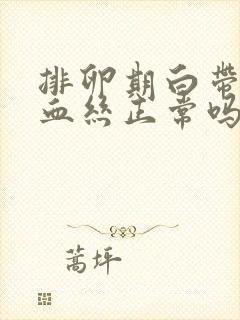 排卵期白带
血丝正常吗
蒿坪